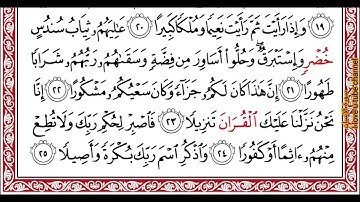 ١٩ وَإِذَا رَأَيْتَ ثَمَّ رَأَيْتَ نَعِيمًا وَمُلْكًا كَبِيرًا ٢٠ عَالِيَهُمْ ثِيَابُ سُندُسٍ
خُضْرٌ وَإِسْتَبْرَقٌ وَحُلُّوا أَسَاوِرَ مِن فِضَّةٍ وَسَقَاهُمْ رَبُّهُمْ شَرَابًا
طَهُورًا ٢١ إِنَّ هَذَا كَانَ لَكُمْ جَزَاءً وَكَانَ سَعْيُكُم مَّشْكُورًا ٢٢ إِنَّا
نَحْنُ نَزَّلْنَا عَلَيْكَ الْقُرْآنَ تَنزِيلًا ٢٣ فَاصْبِرْ لِحُكْمِ رَبِّكَ وَلَا تُطِعْ
مِنْهُمْ آثِمًا أَوْ كَفُورًا ٢٤ وَاذْكُرِ اسْمَ رَبِّكَ بُكْرَةً وَأَصِيلًا ٢٥